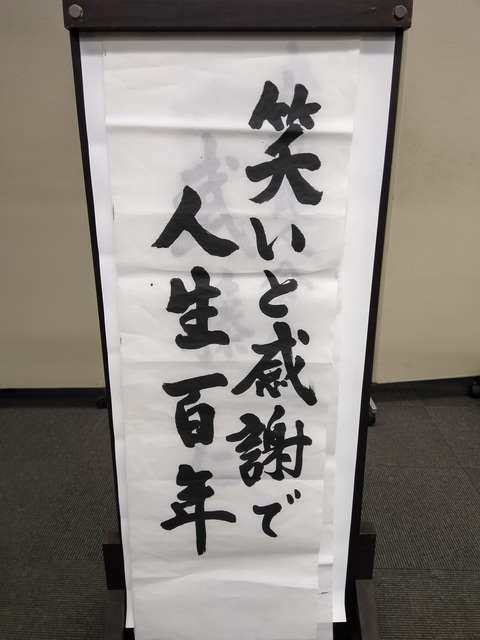 笑いと感謝で
人生百年